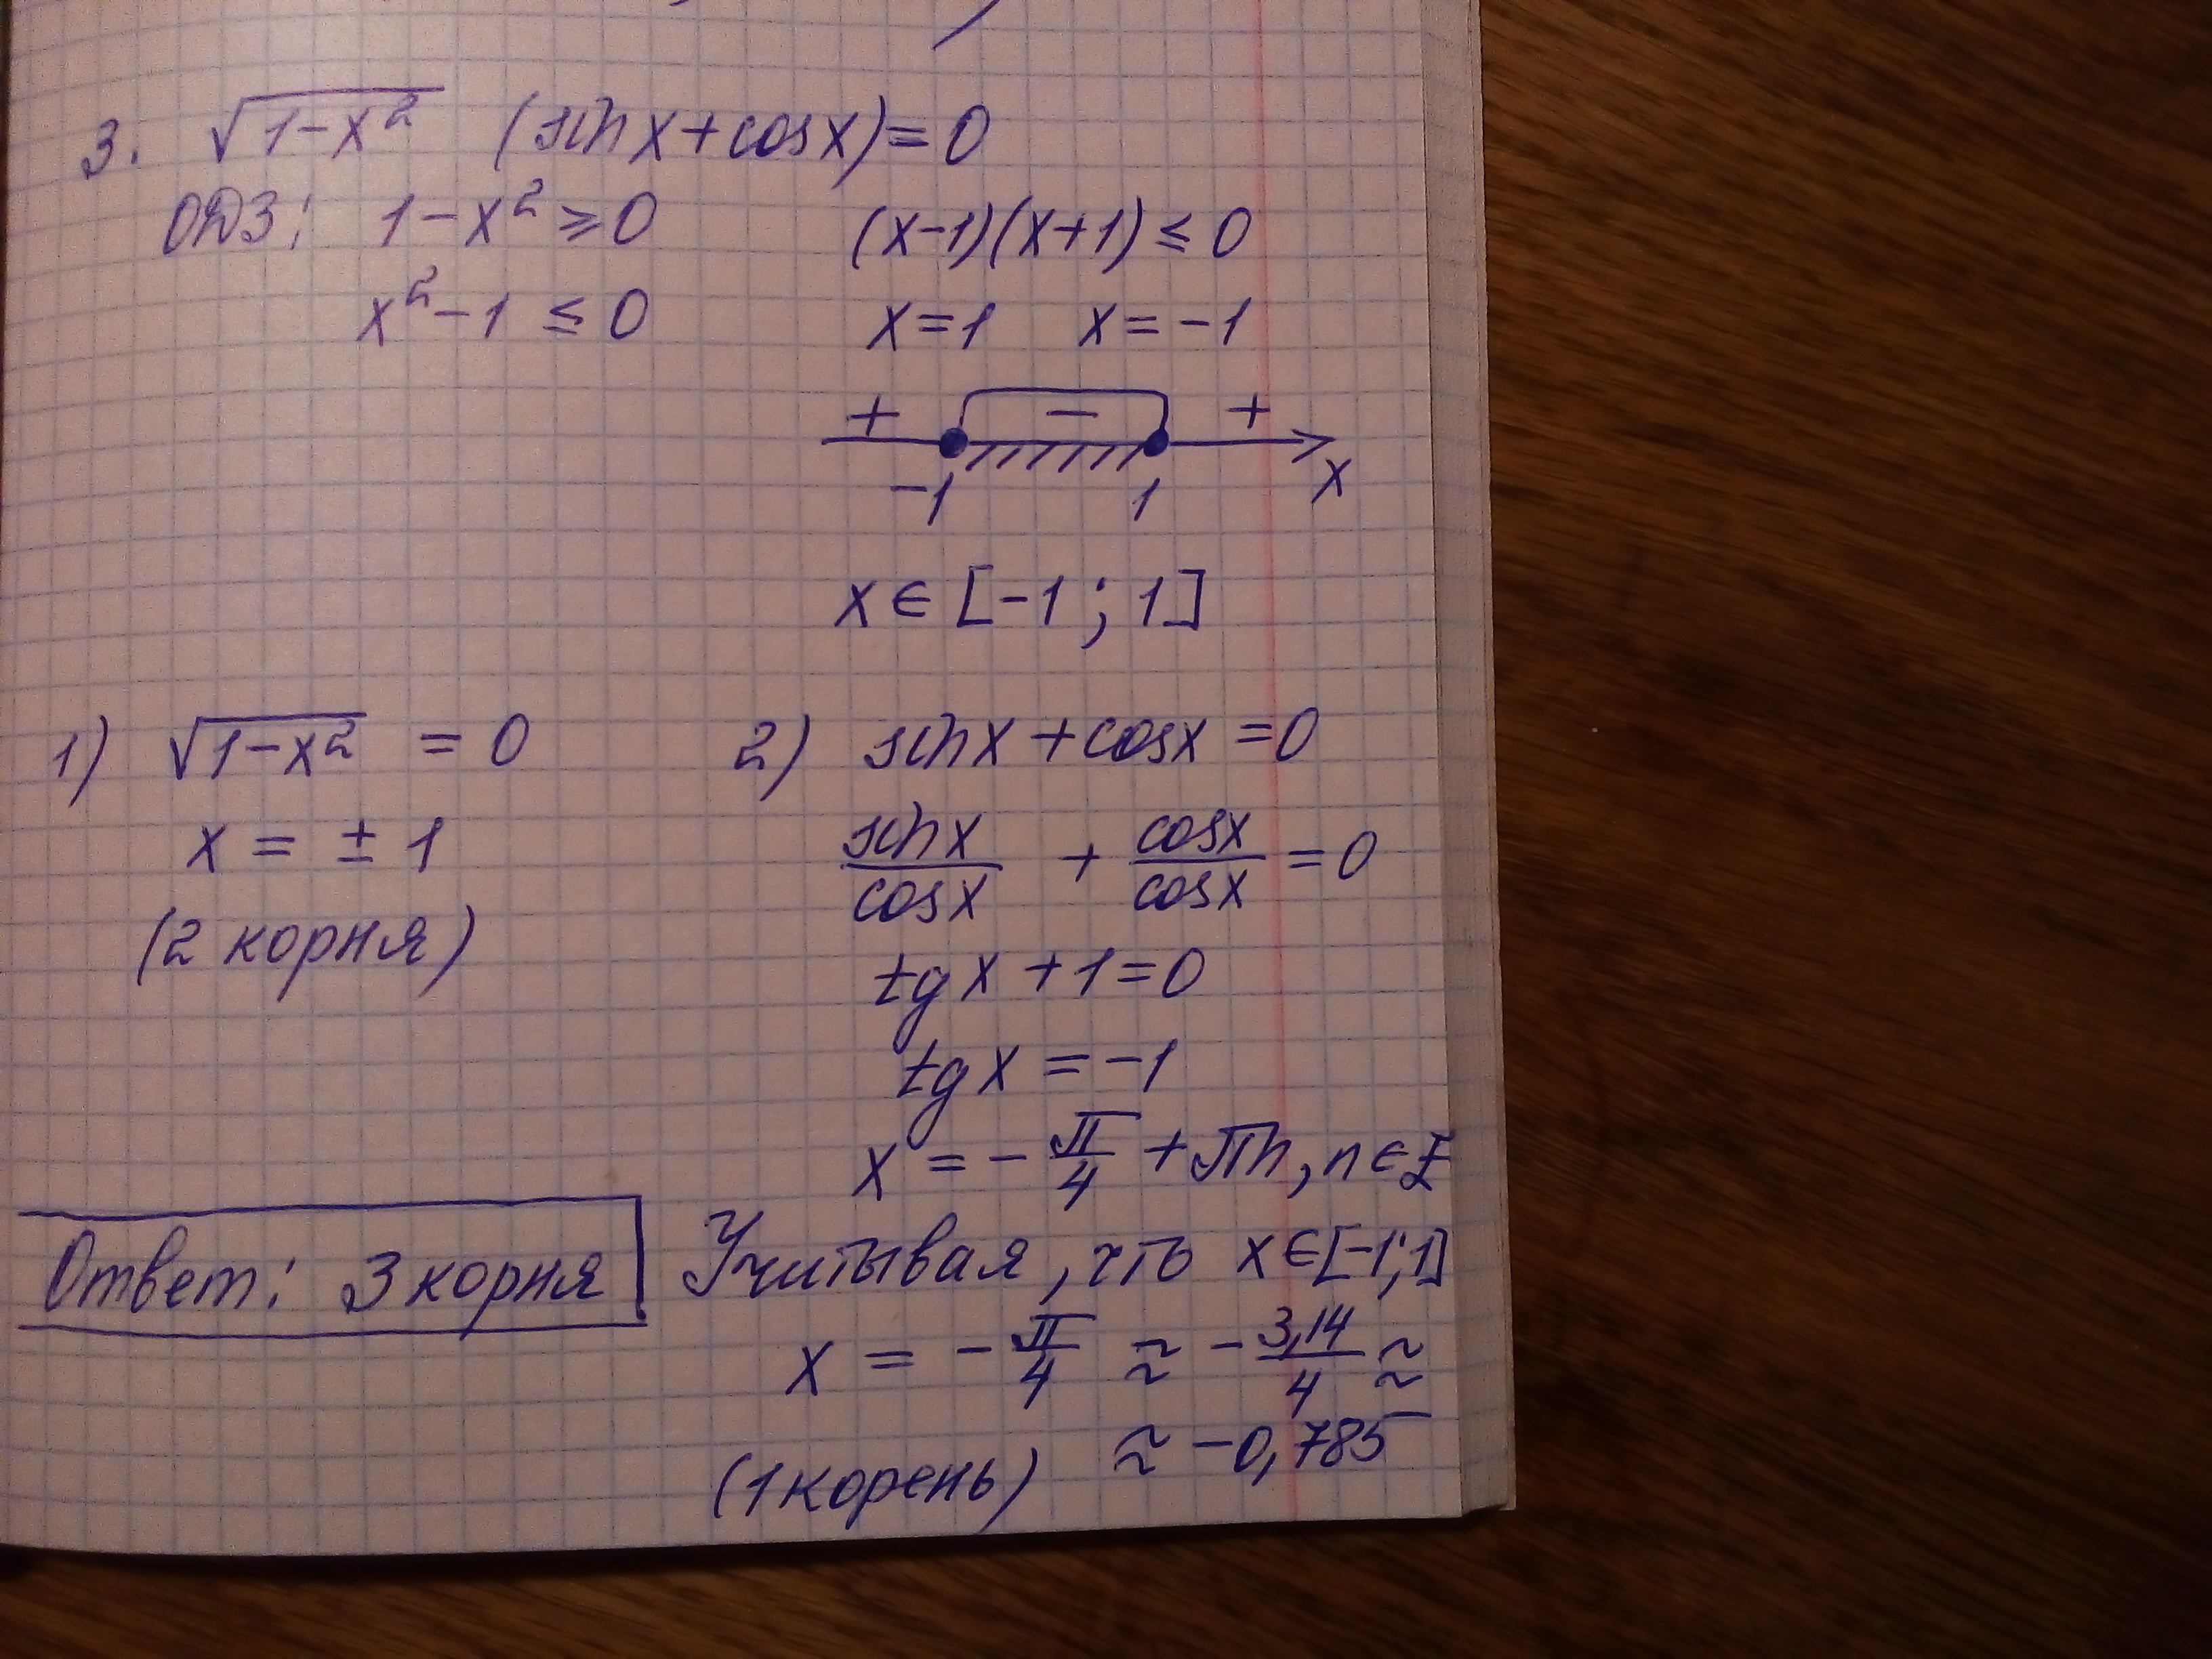 3. √(1-x²) (sin x + cos x) = 0
ОДЗ: 1-x² ⩾ 0
x²-1 ≤ 0
(x-1)(x+1) ≤ 0
x=1 x=-1
+ − +
-1 1 x
x ∈ [-1; 1]
1) √(1-x²) = 0
x = ± 1
(2 корня)
2) sin x + cos x = 0
sin x / cos x + cos x / cos x = 0
tg x + 1 = 0
tg x = -1
x = -π/4 + πn, n ∈ Z
Учитывая, что x ∈ [-1; 1]
x = -π/4 ≈ -3,14/4 ≈
≈ -0,785
(1 корень)
Ответ: 3 корня